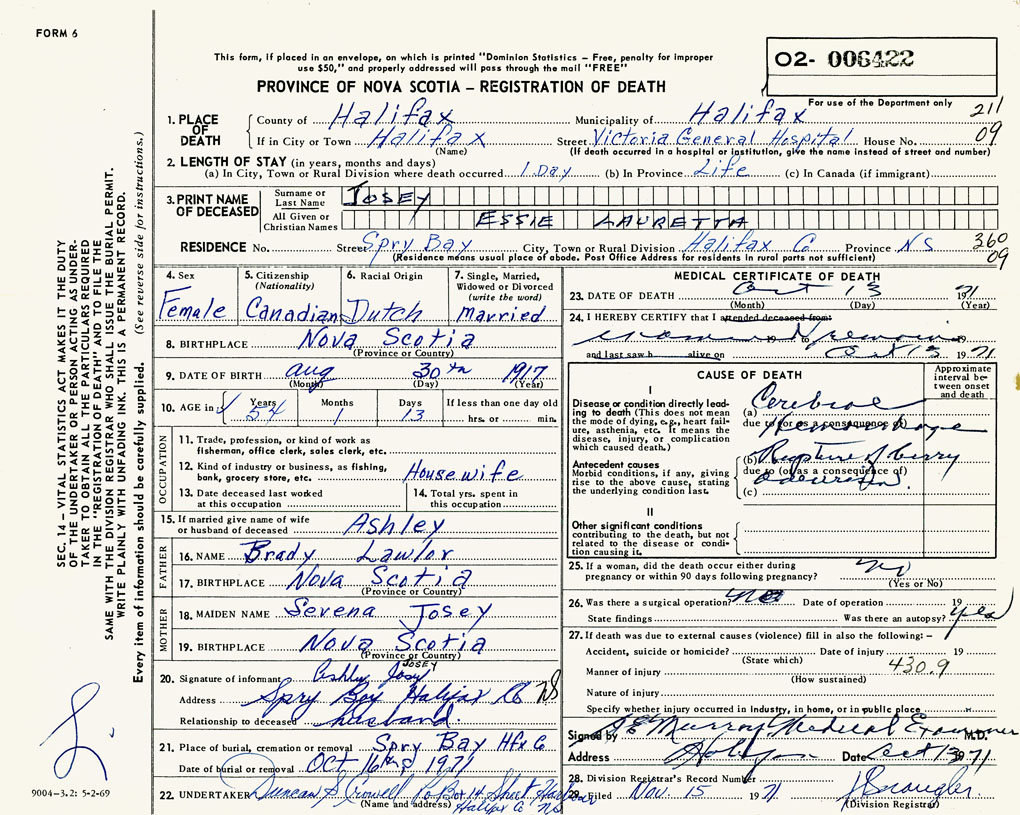 FORM 6
This form, if placed in an envelope, on which is printed "Dominion Statistics – Free, penalty for improper
use $50," and properly addressed will pass through the mail "FREE"
O2- 006422
For use of the Department only
PROVINCE OF NOVA SCOTIA – REGISTRATION OF DEATH
211
09
1. PLACE OF DEATH
County of Halifax Municipality of Halifax
If in City or Town Halifax Street Victoria General Hospital House No.
(Name) (If death occurred in a hospital or institution, give the name instead of street and number)
2. LENGTH OF STAY (in years, months and days)
(a) In City, Town or Rural Division where death occurred 1 Day (b) In Province Life (c) In Canada (if immigrant)
3. PRINT NAME OF DECEASED
Surname or Last Name JOSEY
All Given or Christian Names ESSIE LAURETTA
RESIDENCE No. Street Spry Bay City, Town or Rural Division Halifax Co. Province NS
360
09
(Residence means usual place of abode. Post Office Address for residents in rural parts not sufficient)
4. Sex
Female
5. Citizenship
(Nationality)
Canadian
6. Racial Origin
Dutch
7. Single, Married,
Widowed or Divorced
(write the word)
Married
8. BIRTHPLACE Nova Scotia
(Province or Country)
9. DATE OF BIRTH Aug 30th 1917
(Month) (Day) (Year)
10. AGE in Years 54 Months 1 Days 13 If less than one day old
hrs. or min.
OCCUPATION
11. Trade, profession, or kind of work as
fisherman, office clerk, sales clerk, etc.
12. Kind of industry or business, as fishing,
bank, grocery store, etc. Housewife
13. Date deceased last worked
at this occupation
14. Total yrs. spent in
this occupation
15. If married give name of wife
or husband of deceased Ashley
FATHER
16. NAME Brady Lawlor
17. BIRTHPLACE Nova Scotia
(Province or Country)
MOTHER
18. MAIDEN NAME Sevena Josey
19. BIRTHPLACE Nova Scotia
(Province or Country)
JOSEY
20. Signature of informant Ashley Josy
Address Spry Bay Halifax Co NS
Relationship to deceased husband.
21. Place of burial, cremation or removal Spry Bay Hfx Co
Date of burial or removal Oct 16th 1971
22. UNDERTAKER Duncan S Crowell Po Box 14 Sheet Harbour
(Name and address) Halifax Co NS
MEDICAL CERTIFICATE OF DEATH
23. DATE OF DEATH Oct 13 1971
(Month) (Day) (Year)
24. I HEREBY CERTIFY that I attended deceased from:
19 to 19
and last saw h alive on Oct 13 1971
CAUSE OF DEATH
Approximate
interval be-
tween onset
and death
I
Disease or condition directly lead-
ing to death (This does not mean
the mode of dying, e.g., heart fail-
ure, asthenia, etc. It means the
disease, injury, or complication
which caused death.)
(a) Cerebral
due to (or as a consequence of)
Hemorrhage
Antecedent causes
Morbid conditions, if any, giving
rise to the above cause, stating
the underlying condition last.
(b) Rupture of berry
due to (or as a consequence of)
aneurysm.
(c)
II
Other significant conditions
contributing to the death, but not
related to the disease or condi-
tion causing it.
25. If a woman, did the death occur either during
pregnancy or within 90 days following pregnancy? No
(Yes or No)
26. Was there a surgical operation? No Date of operation 19
State findings Was there an autopsy? yes
27. If death was due to external causes (violence) fill in also the following: –
Accident, suicide or homicide? Date of injury 19
(State which)
Manner of injury 430.9
(How sustained)
Nature of injury
Specify whether injury occurred in industry, in home, or in public place
Signed by Murray Medical Examiner M.D.
Address Date Oct 13 1971
28. Division Registrar's Record Number
29. Filed Nov. 15 1971
(Division Registrar)
SEC. 14 – VITAL STATISTICS ACT MAKES IT THE DUTY
OF THE UNDERTAKER OR PERSON ACTING AS UNDER-
TAKER TO OBTAIN ALL THE PARTICULARS REQUIRED
IN THE "REGISTRATION OF DEATH" AND TO FILE THE
SAME WITH THE DIVISION REGISTRAR WHO SHALL ISSUE THE BURIAL PERMIT.
WRITE PLAINLY WITH UNFADING INK. THIS IS A PERMANENT RECORD.
Every item of information should be carefully supplied. (See reverse side for instructions.)
9004-3.2: 5-2-69